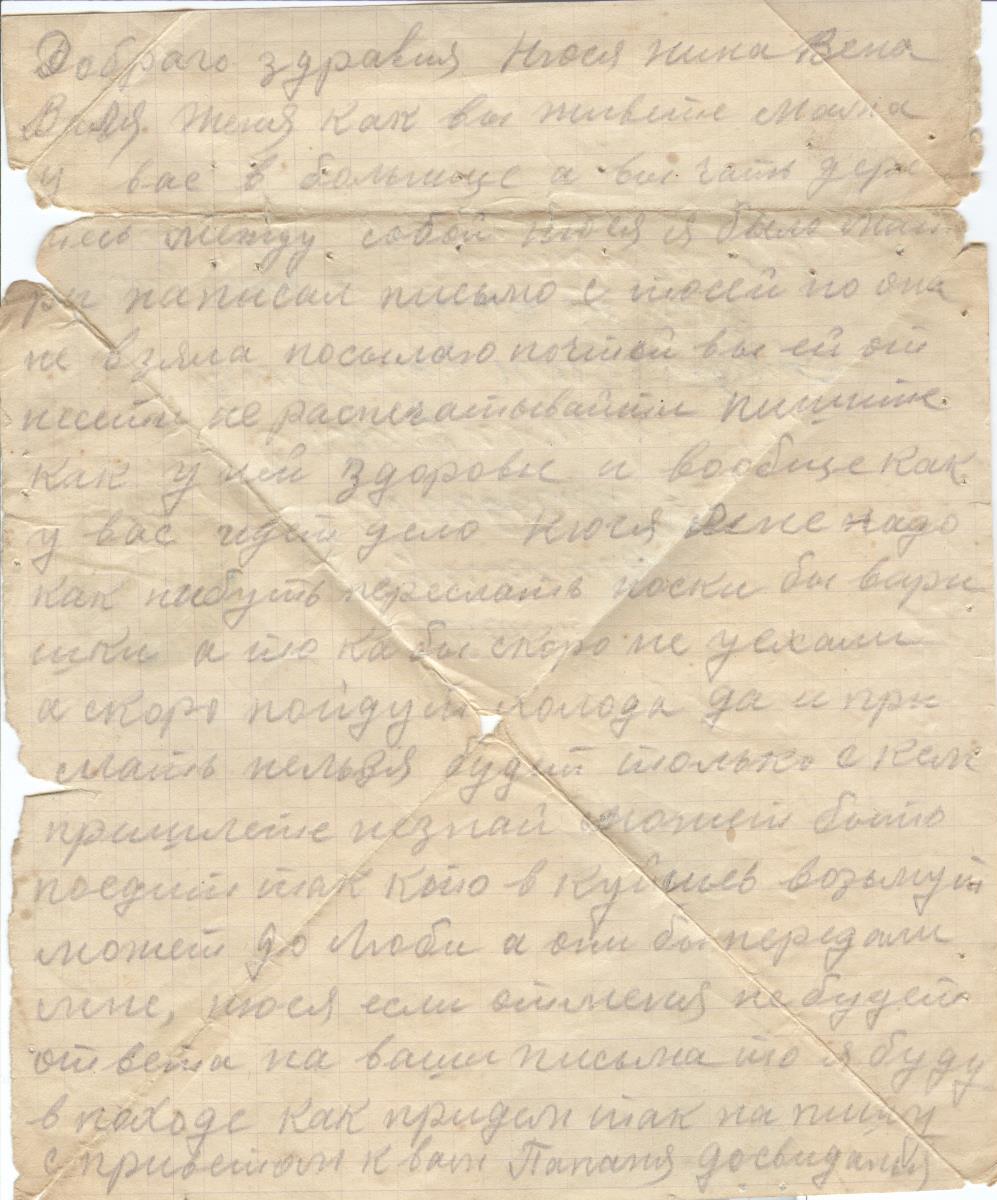 Добраго здравия Нюся нина Вена
Виля Женя как вы живете мама
у вас в больнице а вы чать дере
тесь между собой Нюся я было мам
ри написал письмо с тосей но она
не взяла посылаю почтой вы ей от
несити не распечатывайти пишите
как у ней здоровье и вообще как
у вас идет дело Нюся мне надо
как нибуть переслать носки бы вари
шки а то кабы скоро не уехали
а скоро пойдут холода да и при
слать нельзя будит только с кем
пришлете незнай может быть
поедит так кто в возьмут
может до Любы а они бы передали
мне, нюся если отменя не будет
ответа на ваши письма то я буду
в походе как придем так напишу
с приветом к вам Папаня досвидания